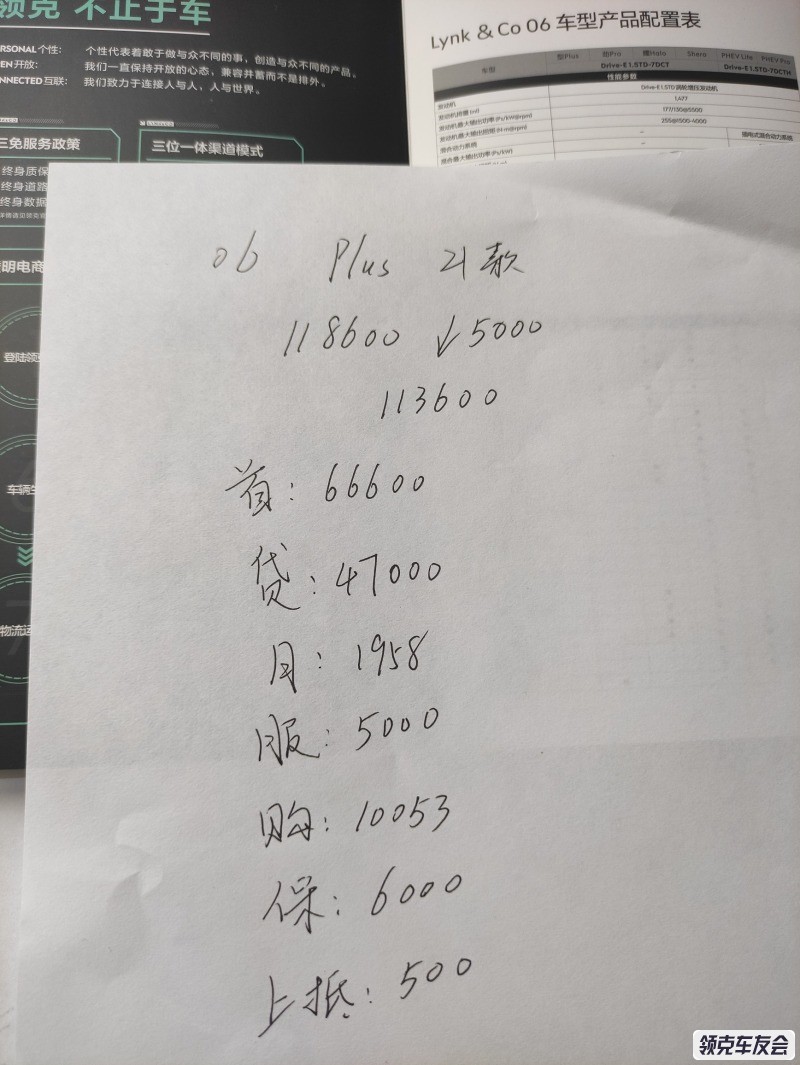 领克 不止于车
RSONAL 个性： 个性代表着敢于做与众不同的事，创造与众不同的产品。
EN 开放： 我们一直保持开放的心态，兼容并蓄而不是排外。
NNECTED 互联： 我们致力于连接人与人，人与世界。
三免服务政策
三位一体渠道模式
终身质保
终身道路
终身数据
明电商
登陆领
车辆生
物流运
Lynk & Co 06 车型产品配置表
车型 型Plus 劲Pro 耀Halo Shero PHEV Lite PHEV Pro
Drive-E 1.5TD-7DCT Drive-E 1.5TD-7DCTH
性能参数
发动机 Drive-E 1.5TD 涡轮增压发动机
发动机排量(ml) 1,477
发动机最大输出功率(Ps/kW@rpm) 177/130@5500
发动机最大输出扭矩(N·m@rpm) 255@1500-4000
混合动力系统 – 插电式混合动力系统
混合最大输出功率(Ps/kW) –
06 Plus 21款
118600 ↓5000
113600
首：66600
贷：47000
月：1958
服：5000
购：10053
保：6000
上抵：500
领克车友会